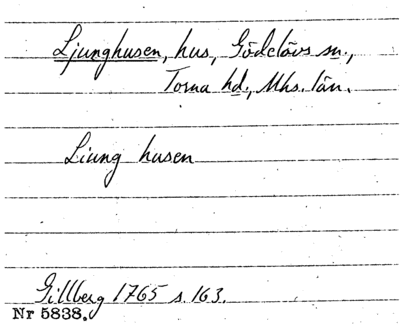 Ljunghusen, hus, Gödelövs sn.,
Torna hd., Mhs. län.
Liung husen
Gillberg 1765 s. 163.
Nr 5838.